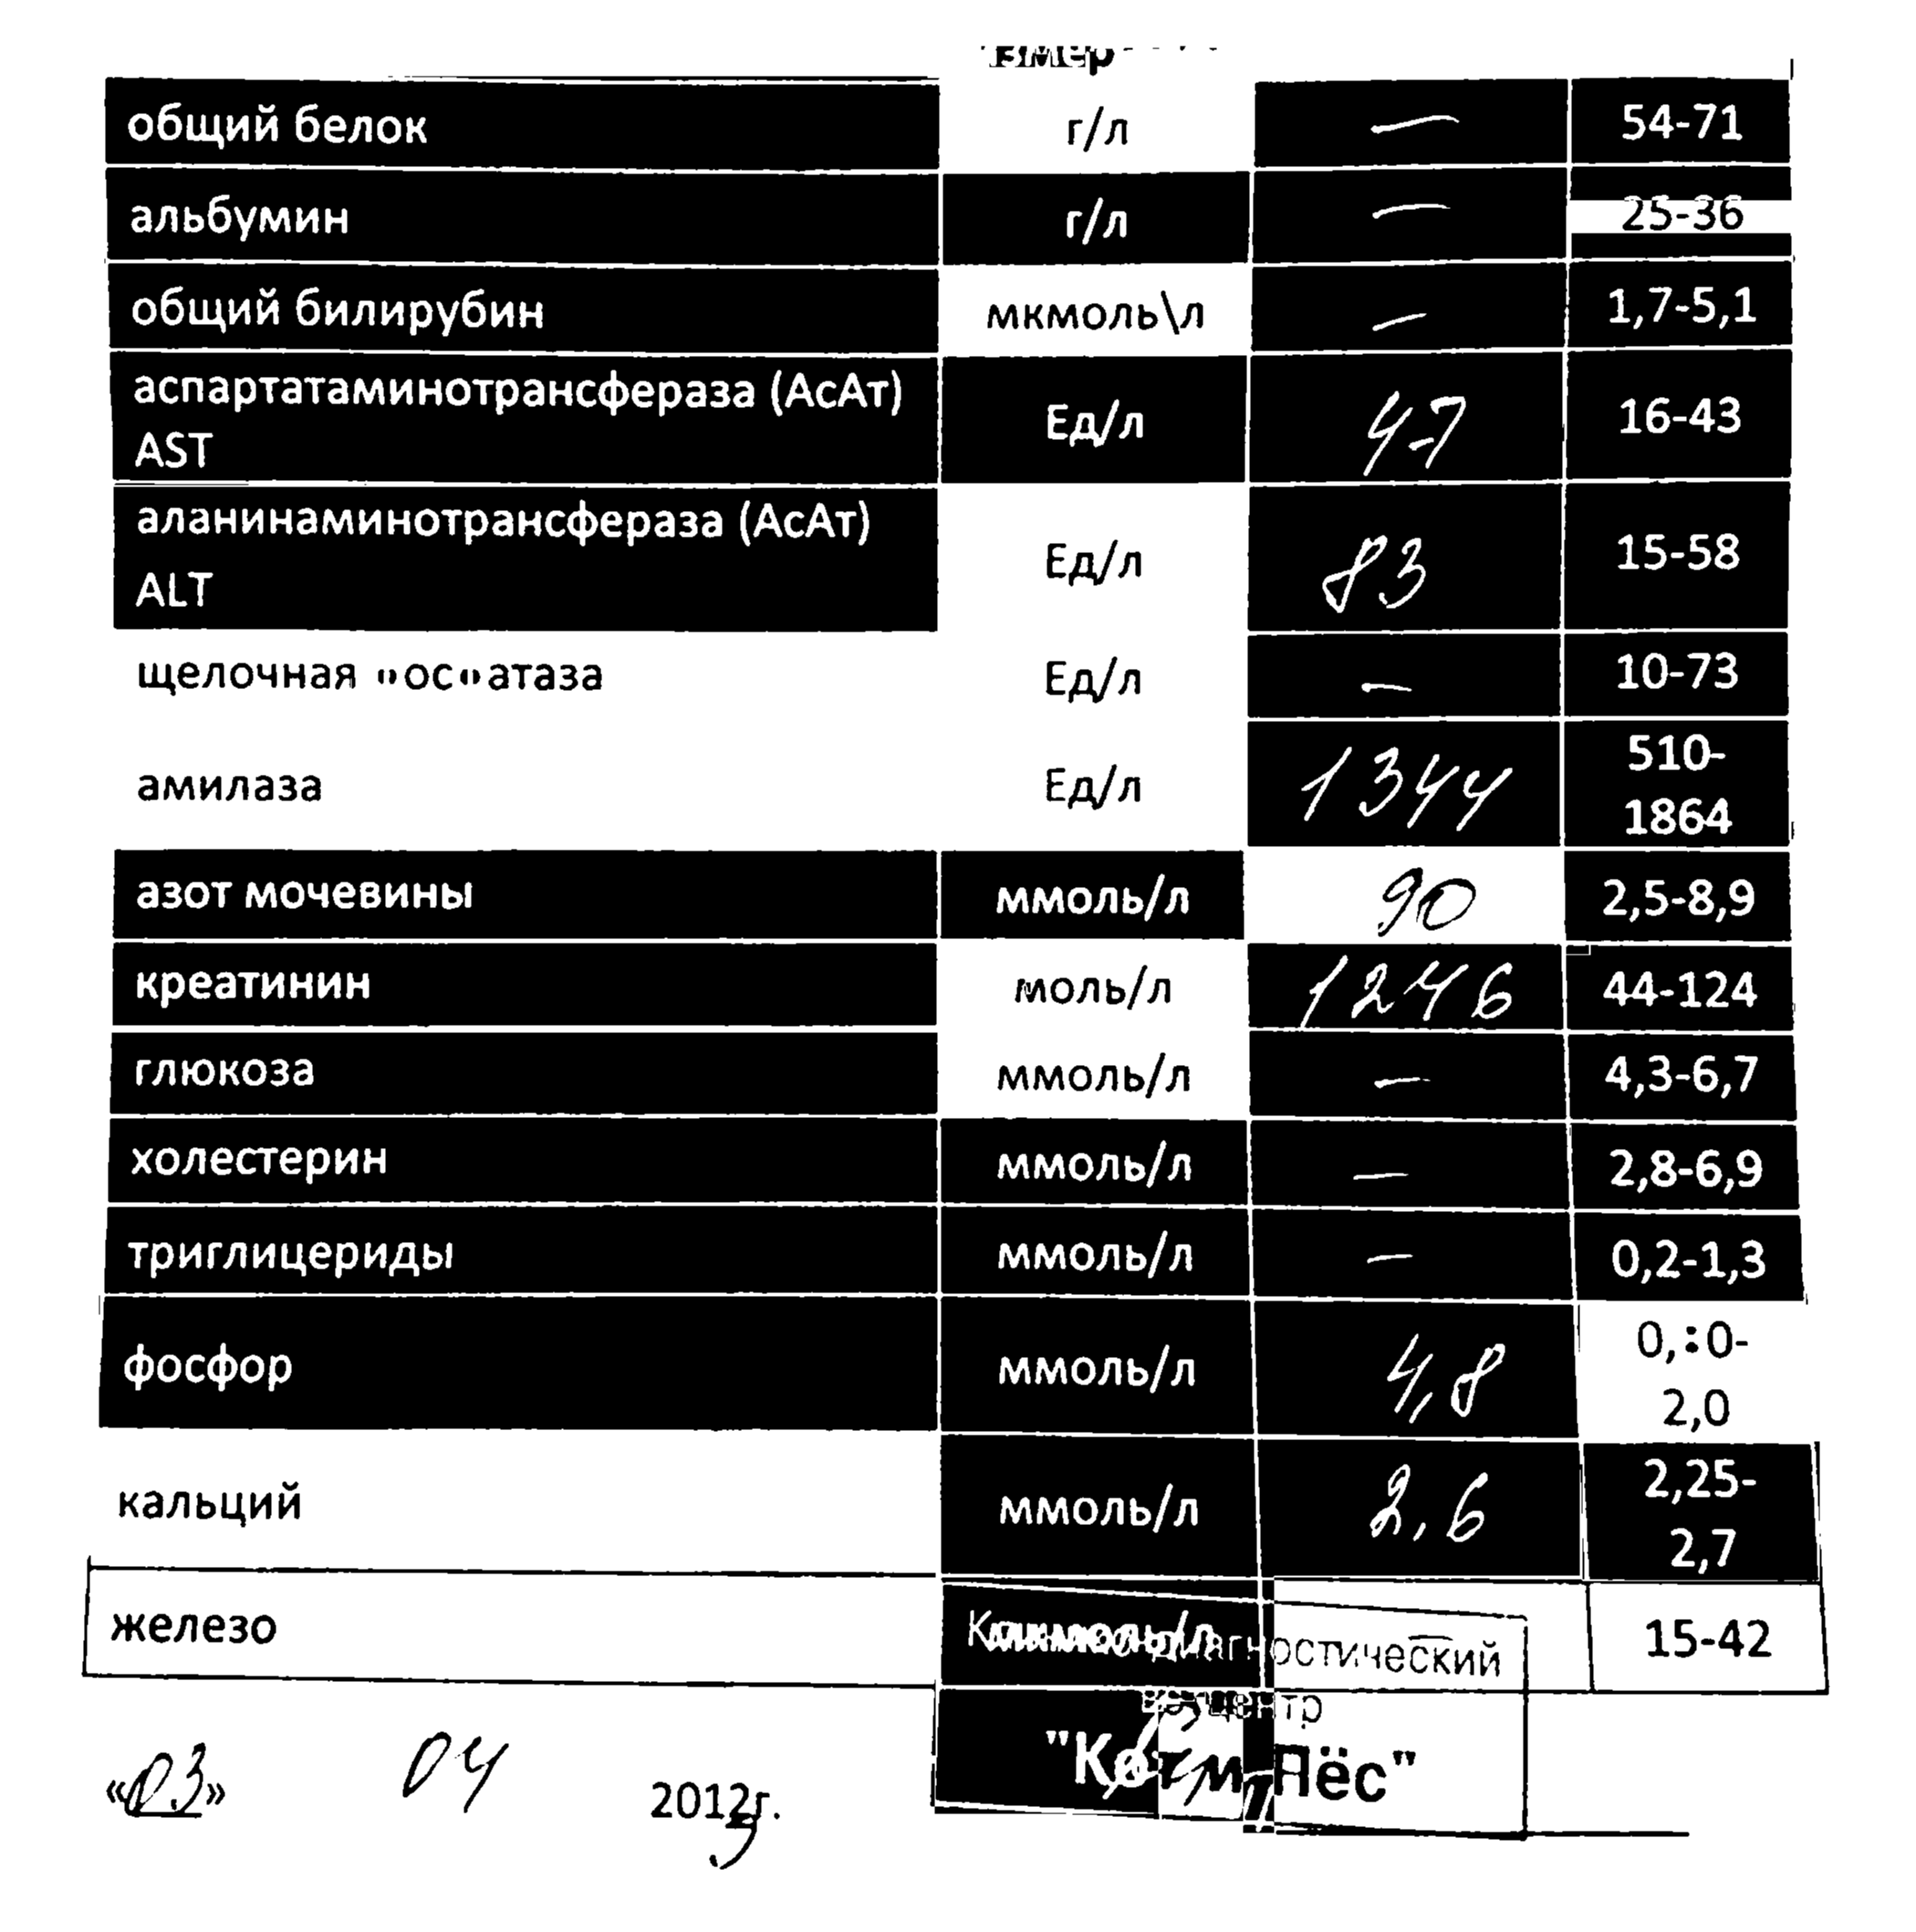 общий белок г/л — 54-71
альбумин г/л — 25-36
общий билирубин мкмоль\л — 1,7-5,1
аспартатаминотрансфераза (АсАт)
AST Ед/л 47 16-43
аланинаминотрансфераза (АсАт)
ALT Ед/л 83 15-58
щелочная Ед/л — 10-73
амилаза Ед/л 1344 510-
1864
азот мочевины ммоль/л 90 2,5-8,9
креатинин моль/л 1246 44-124
глюкоза ммоль/л — 4,3-6,7
холестерин ммоль/л — 2,8-6,9
триглицериды ммоль/л — 0,2-1,3
фосфор ммоль/л 4,8
2,0
кальций ммоль/л 2,6 2,25-
2,7
железо 15-42
«03» 04 2012г.